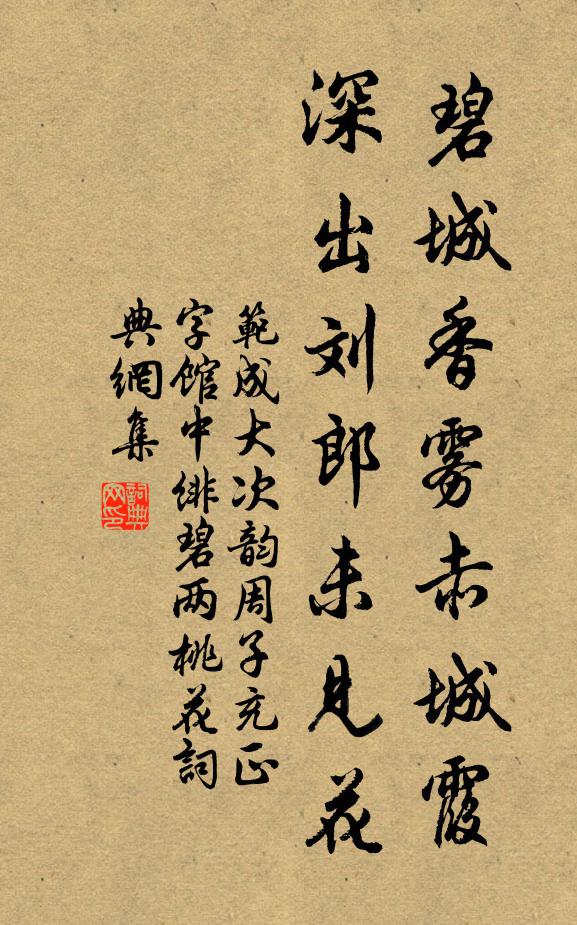 碧城香雾赤城霞
深出刘郎未见花
範成大次韵周子充正
字馆中绯碧两桃花詞
典網集
詞典
网印